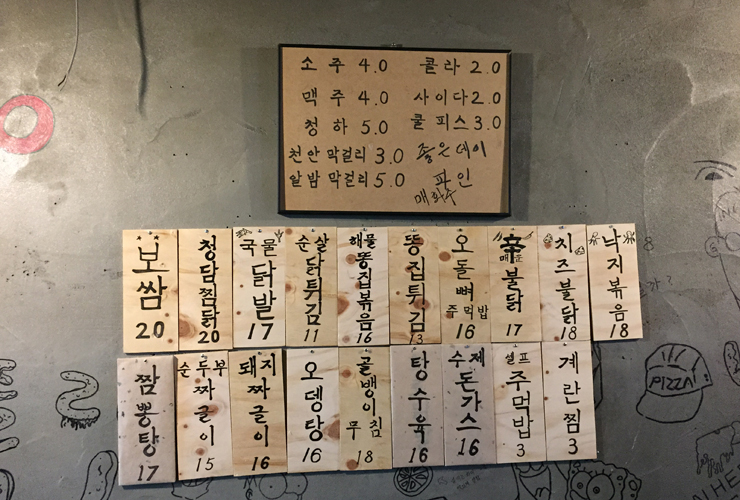 소주 4.0 콜라 2.0
맥주 4.0 사이다 2.0
청하 5.0 쿨피스 3.0
천안 막걸리 3.0 좋은데이
알밤 막걸리 5.0 파인
매화수
보쌈 20
청담찜닭 20
국물닭발 17
순살닭튀김 11
해물똥집볶음 16
똥집튀김 13
오돌뼈 주먹밥 16
불닭 17
치즈불닭 18
낙지볶음 18
짬뽕탕 17
순두부짜글이 15
돼지짜글이 16
오뎅탕 16
골뱅이무침 18
탕수육 16
수제돈가스 16
셀프주먹밥 3
계란찜 3
PIZZA